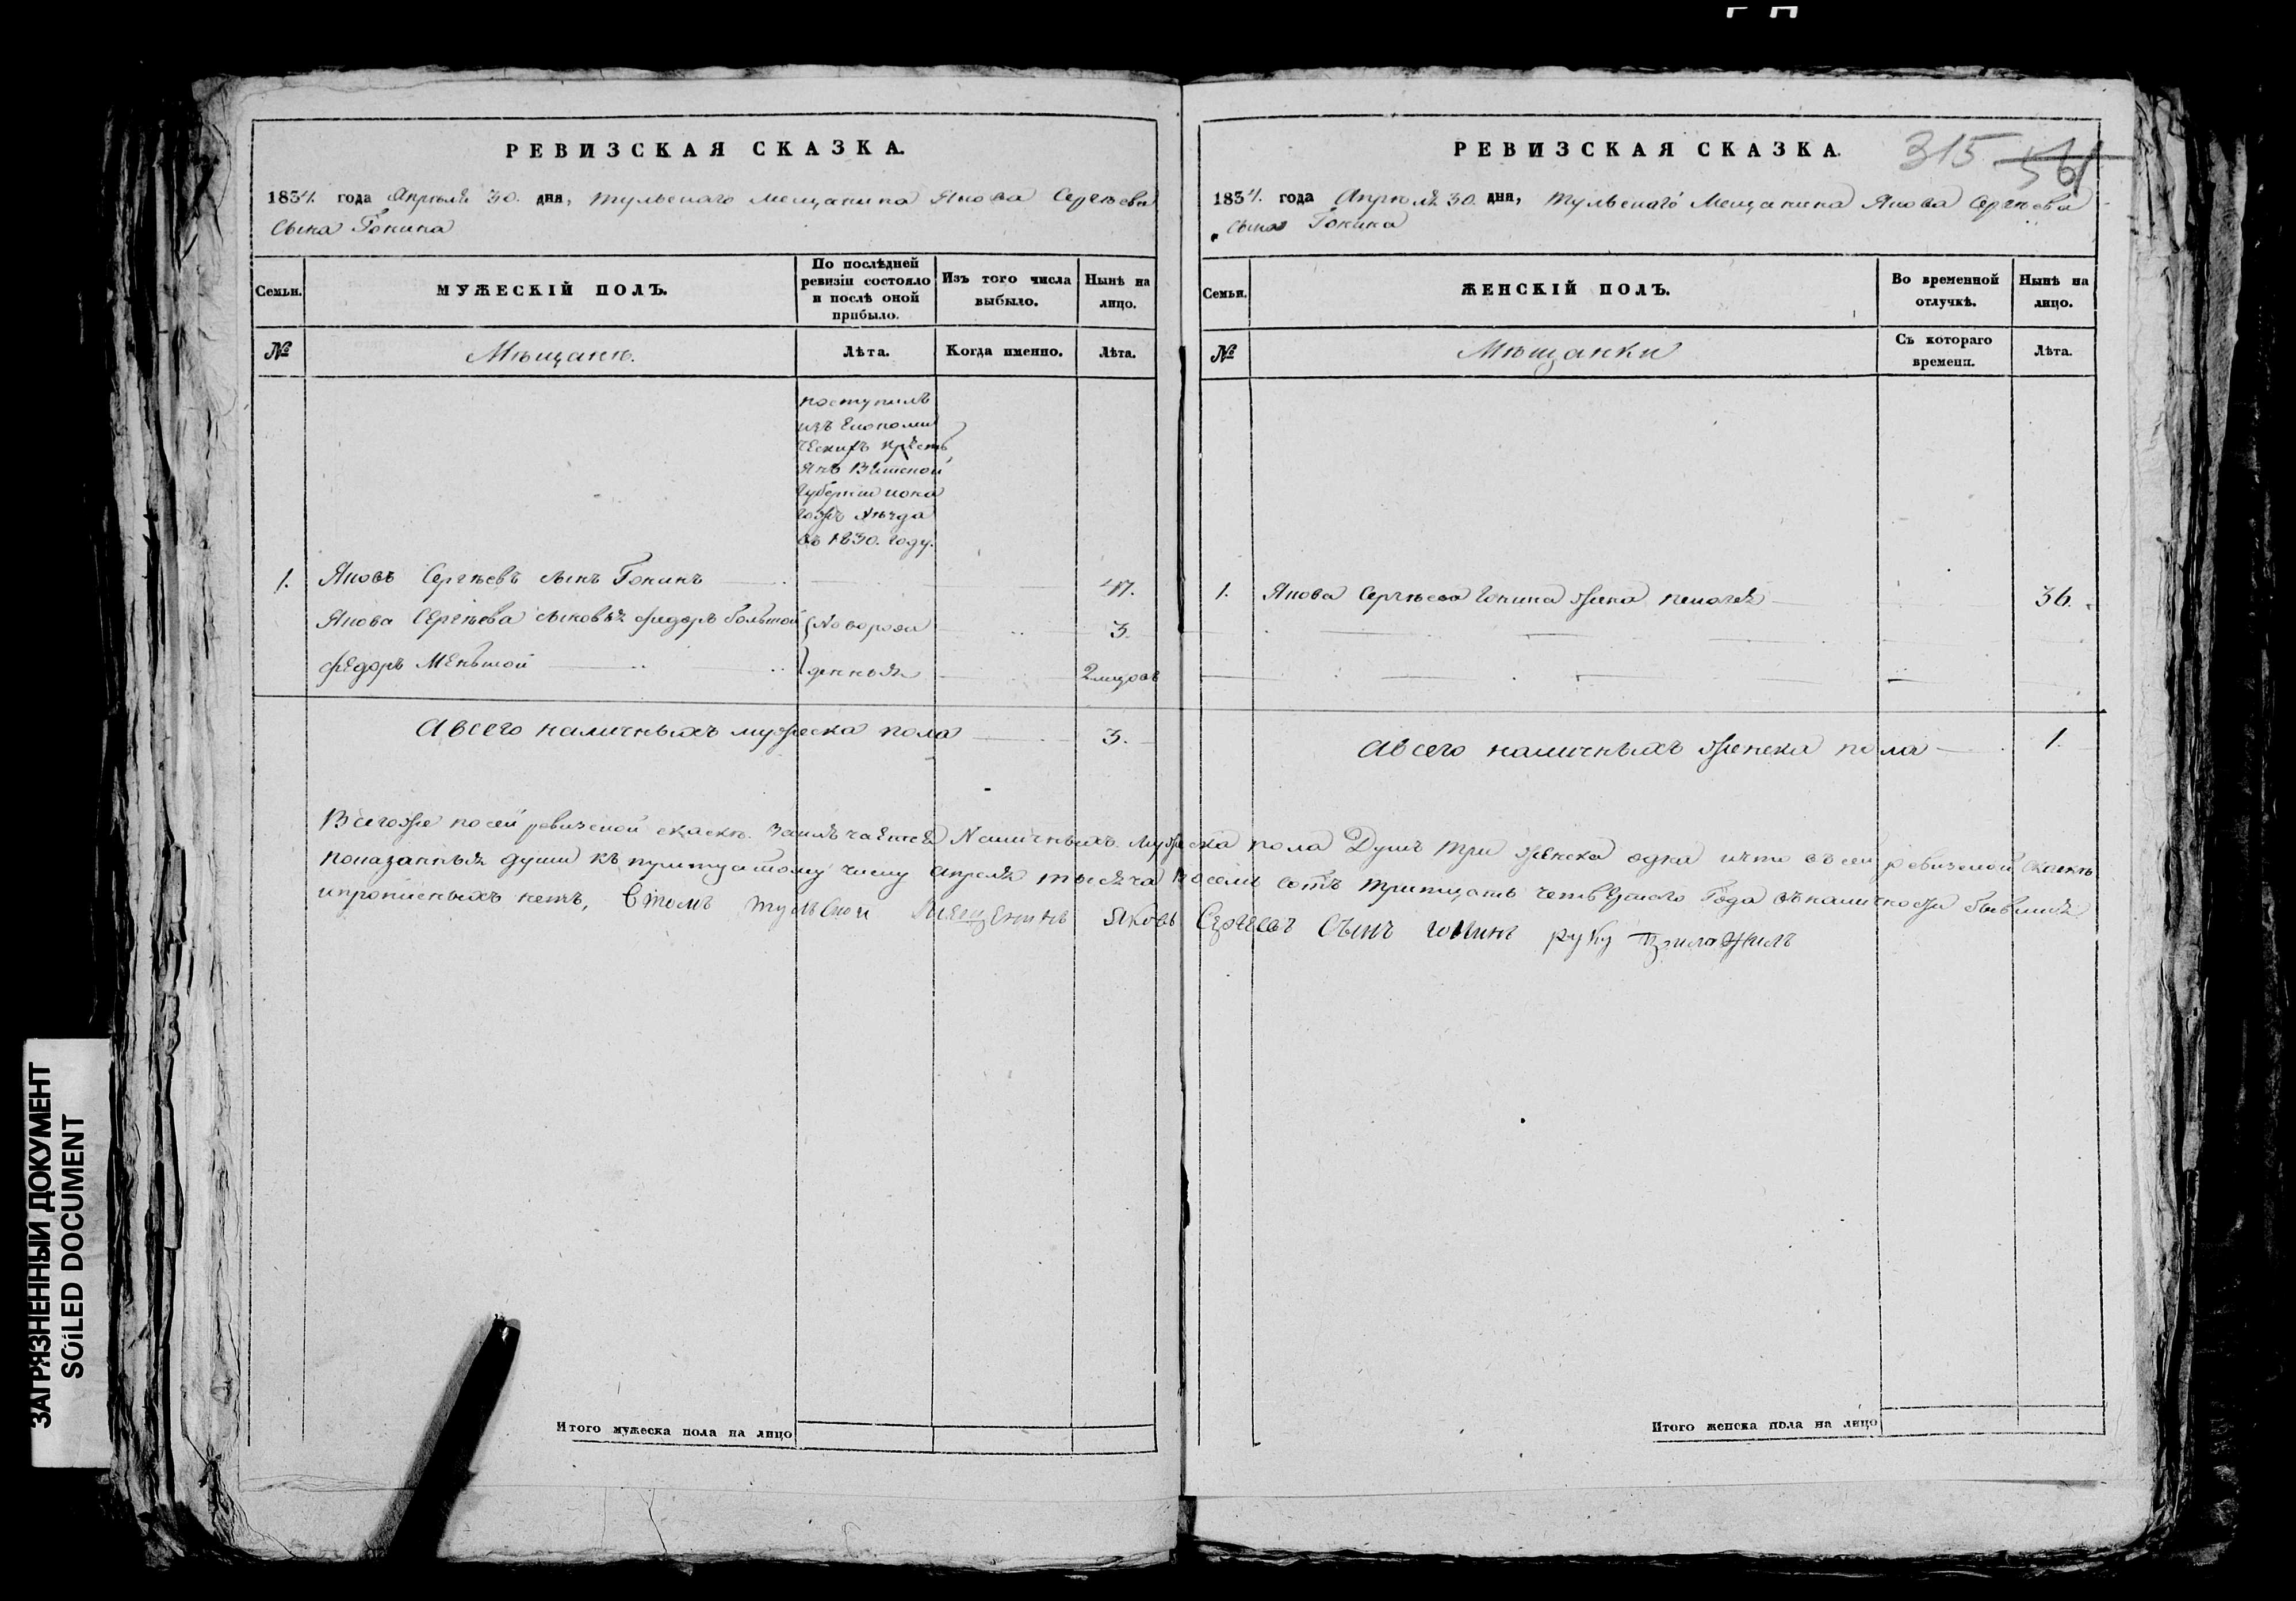 РЕВИЗСКАЯ СКАЗКА.
1834. года Апреля 30. дня, тульскаго мещанина Якова Сергѣева
сына Гонина
Семьи.
МУЖЕСКІЙ ПОЛЪ.
По послѣдней ревизіи состояло и послѣ оной прибыло.
Изъ того числа выбыло.
Нынѣ на лицо.
№
Мѣщане.
Лѣта.
Когда именно.
Лѣта.
поступилъ
изъ Економи
ческихъ кресть
янъ
Губернии
уѣзда
въ 1830. году.
1. Яковъ Сергѣевъ сынъ Гонинъ 47.
Якова Сергѣева сыновья федоръ большой новорож 3.
федоръ Меньшой денныя 2 мцовъ
а всего наличныхъ мужеска пола 3.
РЕВИЗСКАЯ СКАЗКА.
315 561
1834. года Апреля 30. дня, тульскаго мещанина Якова Сергѣева
сына Гонина
Семьи.
ЖЕНСКІЙ ПОЛЪ.
Во временной отлучкѣ.
Нынѣ на лицо.
№
Мѣщанки
Съ котораго времени.
Лѣта.
1. Якова Сергѣева Гонина жена 36.
а всего наличныхъ женска пола 1.
Всегоже по сей ревизской скаске заключается Наличныхъ мужеска пола Душъ три женска одна и что въ сей ревизской скаске
показанныя души къ притцатому числу апреля тысяча восемь сотъ тритцать четвертого Года въ наличности бывшия
ипрописныхъ нетъ, Втомъ тульской мещенинъ яковъ Сергевъ Сынъ гонинъ руку приложилъ
Итого мужеска пола на лицо
Итого женска пола на лицо
ЗАГРЯЗНЕННЫЙ ДОКУМЕНТ
SOiLED DOCUMENT